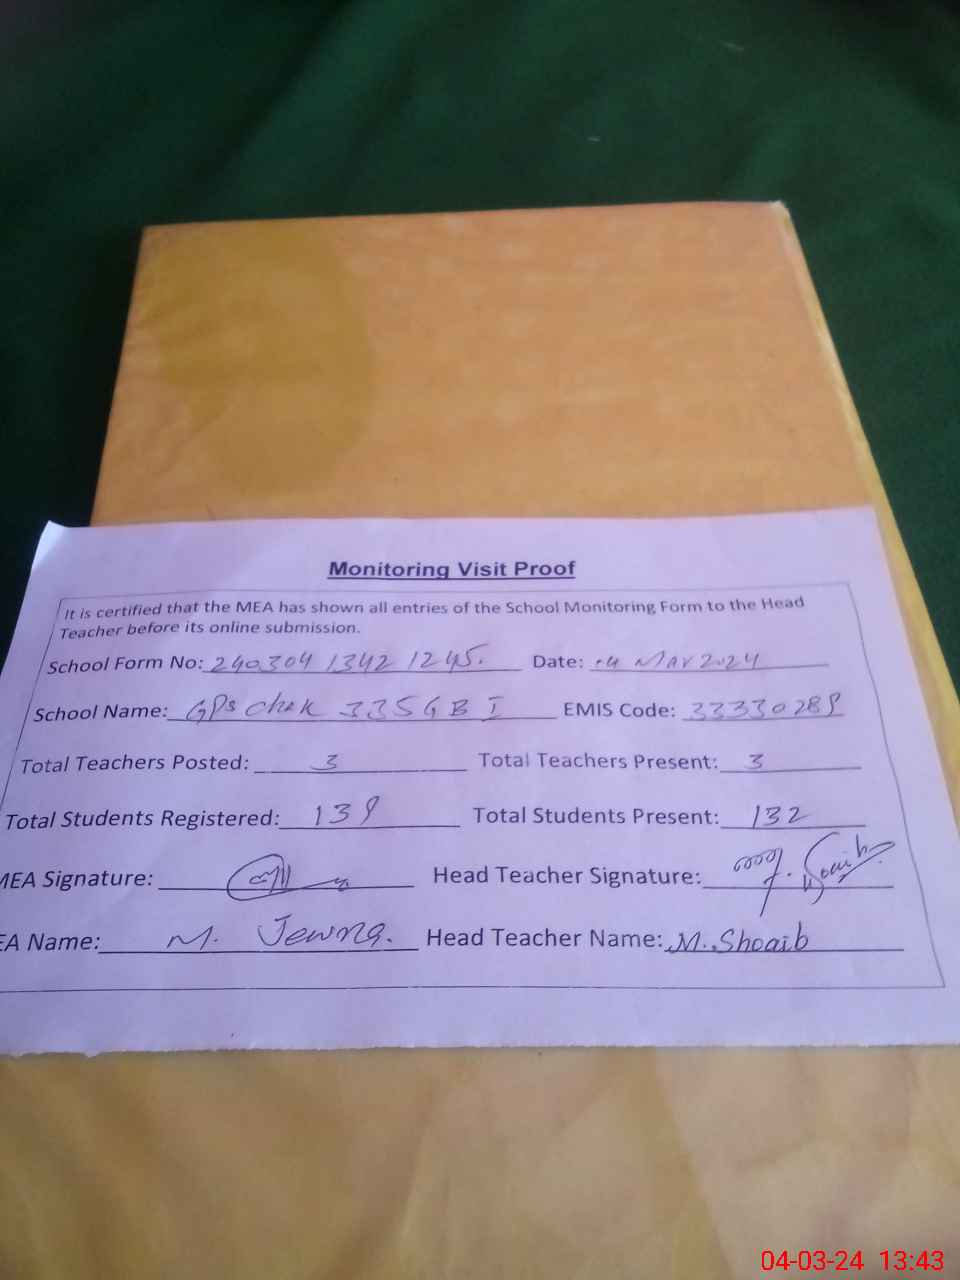 Monitoring Visit Proof
It is certified that the MEA has shown all entries of the School Monitoring Form to the Head
Teacher before its online submission.
School Form No: 240304 1342 1245. Date: 04 Mar 2024
School Name: GPS Chak 335 GB I EMIS Code: 33330289
Total Teachers Posted: 3 Total Teachers Present: 3
Total Students Registered: 139 Total Students Present: 132
MEA Signature: Head Teacher Signature: Shoaib
EA Name: M. Head Teacher Name: M. Shoaib
04-03-24 13:43